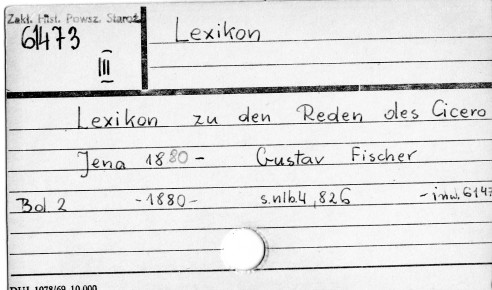 Zakł. Hist. Powsz. Staroż.
61473
III
Lexikon
Lexikon zu den Reden des Cicero
Jena 1880 - Gustav Fischer
Bd. 2 - 1880 - s.nlb.4, 826 - inw. 6147
DUJ. 1078/69. 10.000